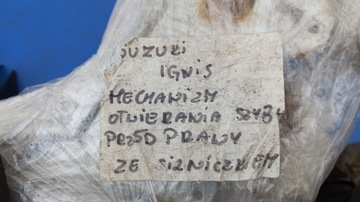 SUZUKI
IGNIS
MECHANIZM
OTWIERANIA SZYBY
PRZÓD PRAWY
ZE SILNICZKIEM